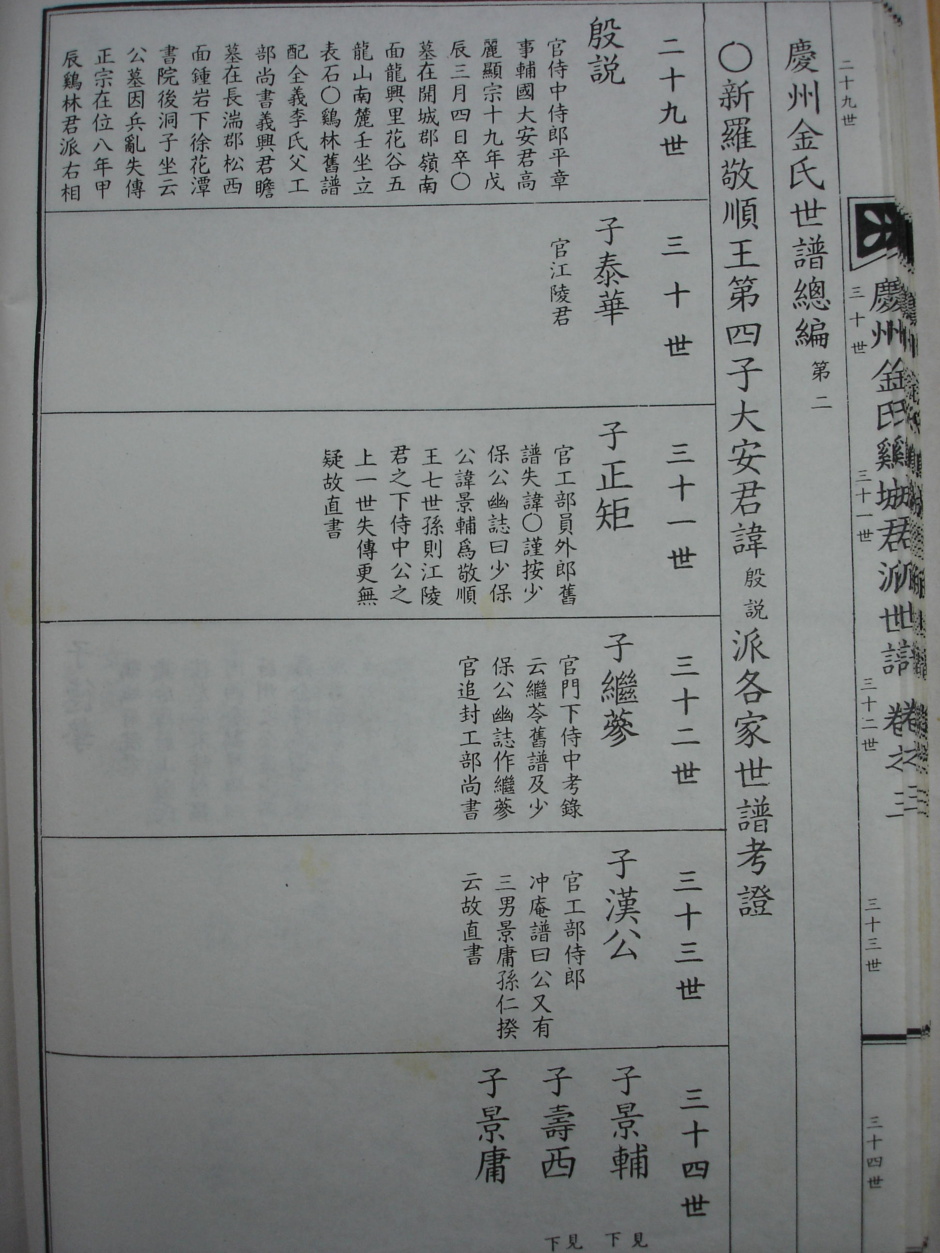 慶州金氏雞城君派世譜 卷之二
二十九世
三十世
三十一世
三十二世
三十三世
三十四世
慶州金氏世譜總編 第二
〇新羅敬順王第四子大安君諱殷説派各家世譜考證
二十九世
殷説
官侍中侍郎平章
事輔國大安君高
麗顯宗十九年戊
辰三月四日卒〇
墓在開城郡嶺南
面龍興里花谷五
龍山南麓壬坐立
表石〇鷄林舊譜
配全義李氏父工
部尚書義興君瞻
墓在長湍郡松西
面鍾岩下徐花潭
書院後洞子坐云
公墓因兵亂失傳
正宗在位八年甲
辰鷄林君派右相
三十世
子泰華
官江陵君
三十一世
子正矩
官工部員外郎舊
譜失諱〇謹按少
保公幽誌曰少保
公諱景輔爲敬順
王七世孫則江陵
君之下侍中公之
上一世失傳更無
疑故直書
三十二世
子繼蔘
官門下侍中考錄
云繼苓舊譜及少
保公幽誌作繼蔘
官追封工部尚書
三十三世
子漢公
官工部侍郎
冲庵譜曰公又有
三男景庸孫仁揆
云故直書
三十四世
子景輔 見下
子壽西 見下
子景庸